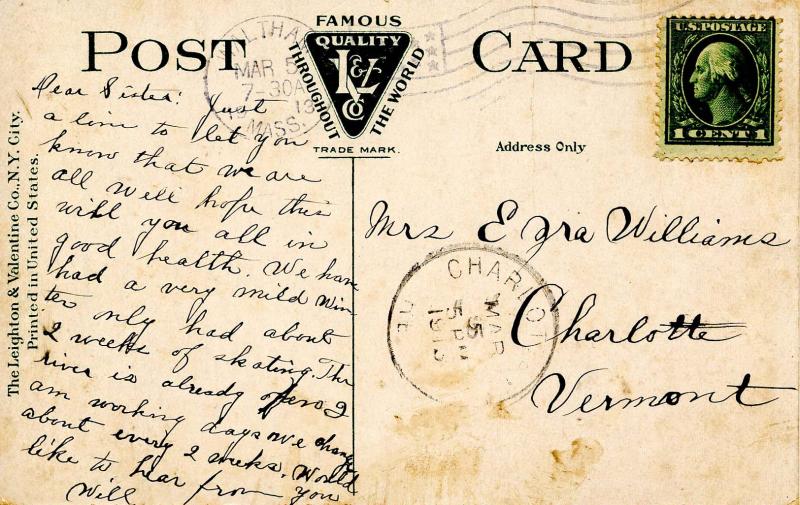 POST CARD
FAMOUS
QUALITY
L&V
CO
THROUGHOUT
THE WORLD
TRADE MARK.
Address Only
U.S. POSTAGE
1 CENT 1
WALTHAM
MAR 5
7-30A
MASS.
Dear Sister: Just
a line to let you
know that we are
all well hope this
will you all in
good health. We have
had a very mild win
ter only had about
2 weeks of skating. The
river is already
am working days we change
about every 2 weeks. Would
like to hear from you
Will
Mrs Ezra Williams
Charlotte
Vermont
CHARLOTTE
MAR
5
5 PM
1913
The Leighton & Valentine Co., N.Y. City.
Printed in United States.